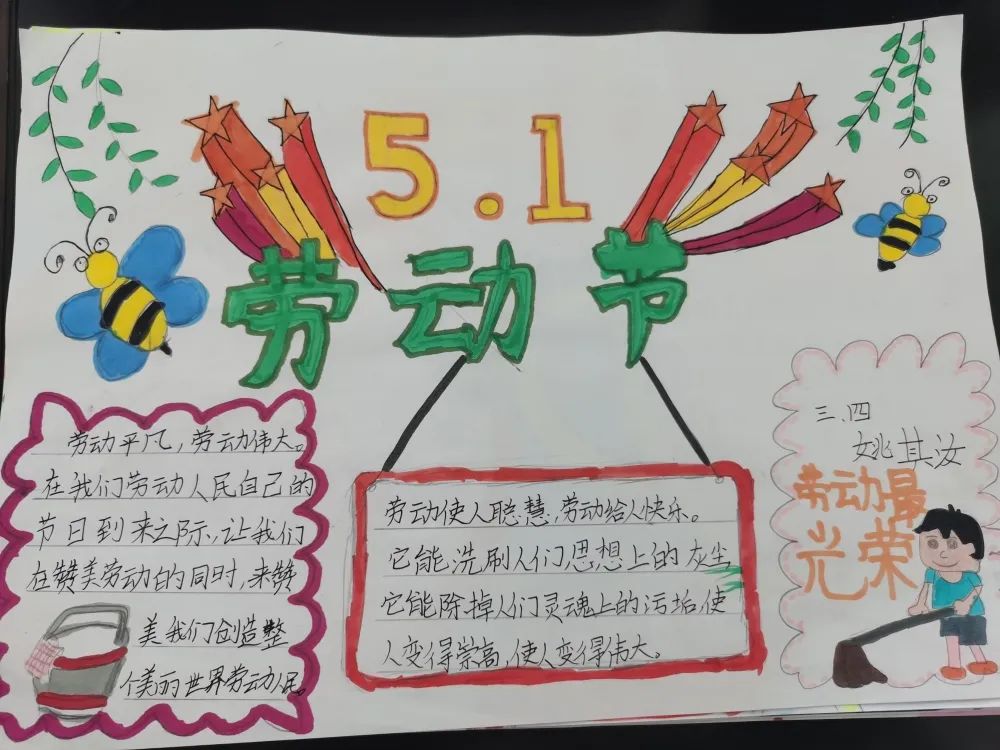 5.1
劳动节
劳动平凡，劳动伟大。
在我们劳动人民自己的
节日到来之际，让我们
在赞美劳动的同时，来赞
美我们创造整
个美丽世界劳动人民。
劳动使人聪慧，劳动给人快乐。
它能洗刷人们思想上的灰尘
它能除掉人们灵魂上的污垢使
人变得崇高，使人变得伟大。
三.四
姚其汝
劳动最
光荣